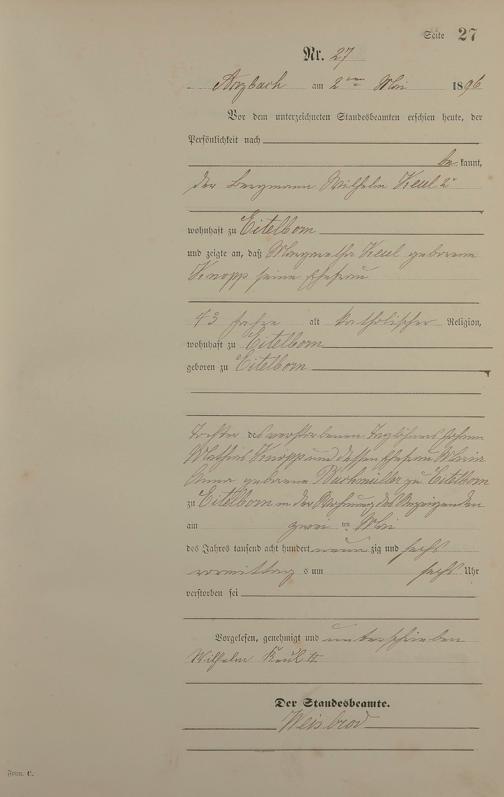 Seite 27
Nr. 27
Arzbach am 2ten Mai 1896
Vor dem unterzeichneten Standesbeamten erschien heute, der
Persönlichkeit nach
be kannt,
der Bergmann Wilhelm Keul 2r
wohnhaft zu Eitelborn
und zeigte an, daß Margaretha Keul geborene
Knopp seine Ehefrau
43 Jahre alt katholischer Religion,
wohnhaft zu Eitelborn
geboren zu Eitelborn
Tochter des verstorbenen Taglöhners Johann
Mathias Knopp und dessen Ehefrau Maria
Anna geborene Buchmüller zu Eitelborn
zu Eitelborn in der Wohnung des Anzeigenden
am zwei ten Mai
des Jahres tausend acht hundert neun zig und sechs
vormittag s um sechs Uhr
verstorben sei
Vorgelesen, genehmigt und unterschrieben
Wilhelm Keul II
Der Standesbeamte.
Weisbrod
Form. C.